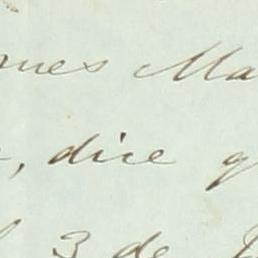 nes Ma
, dice q
3 de